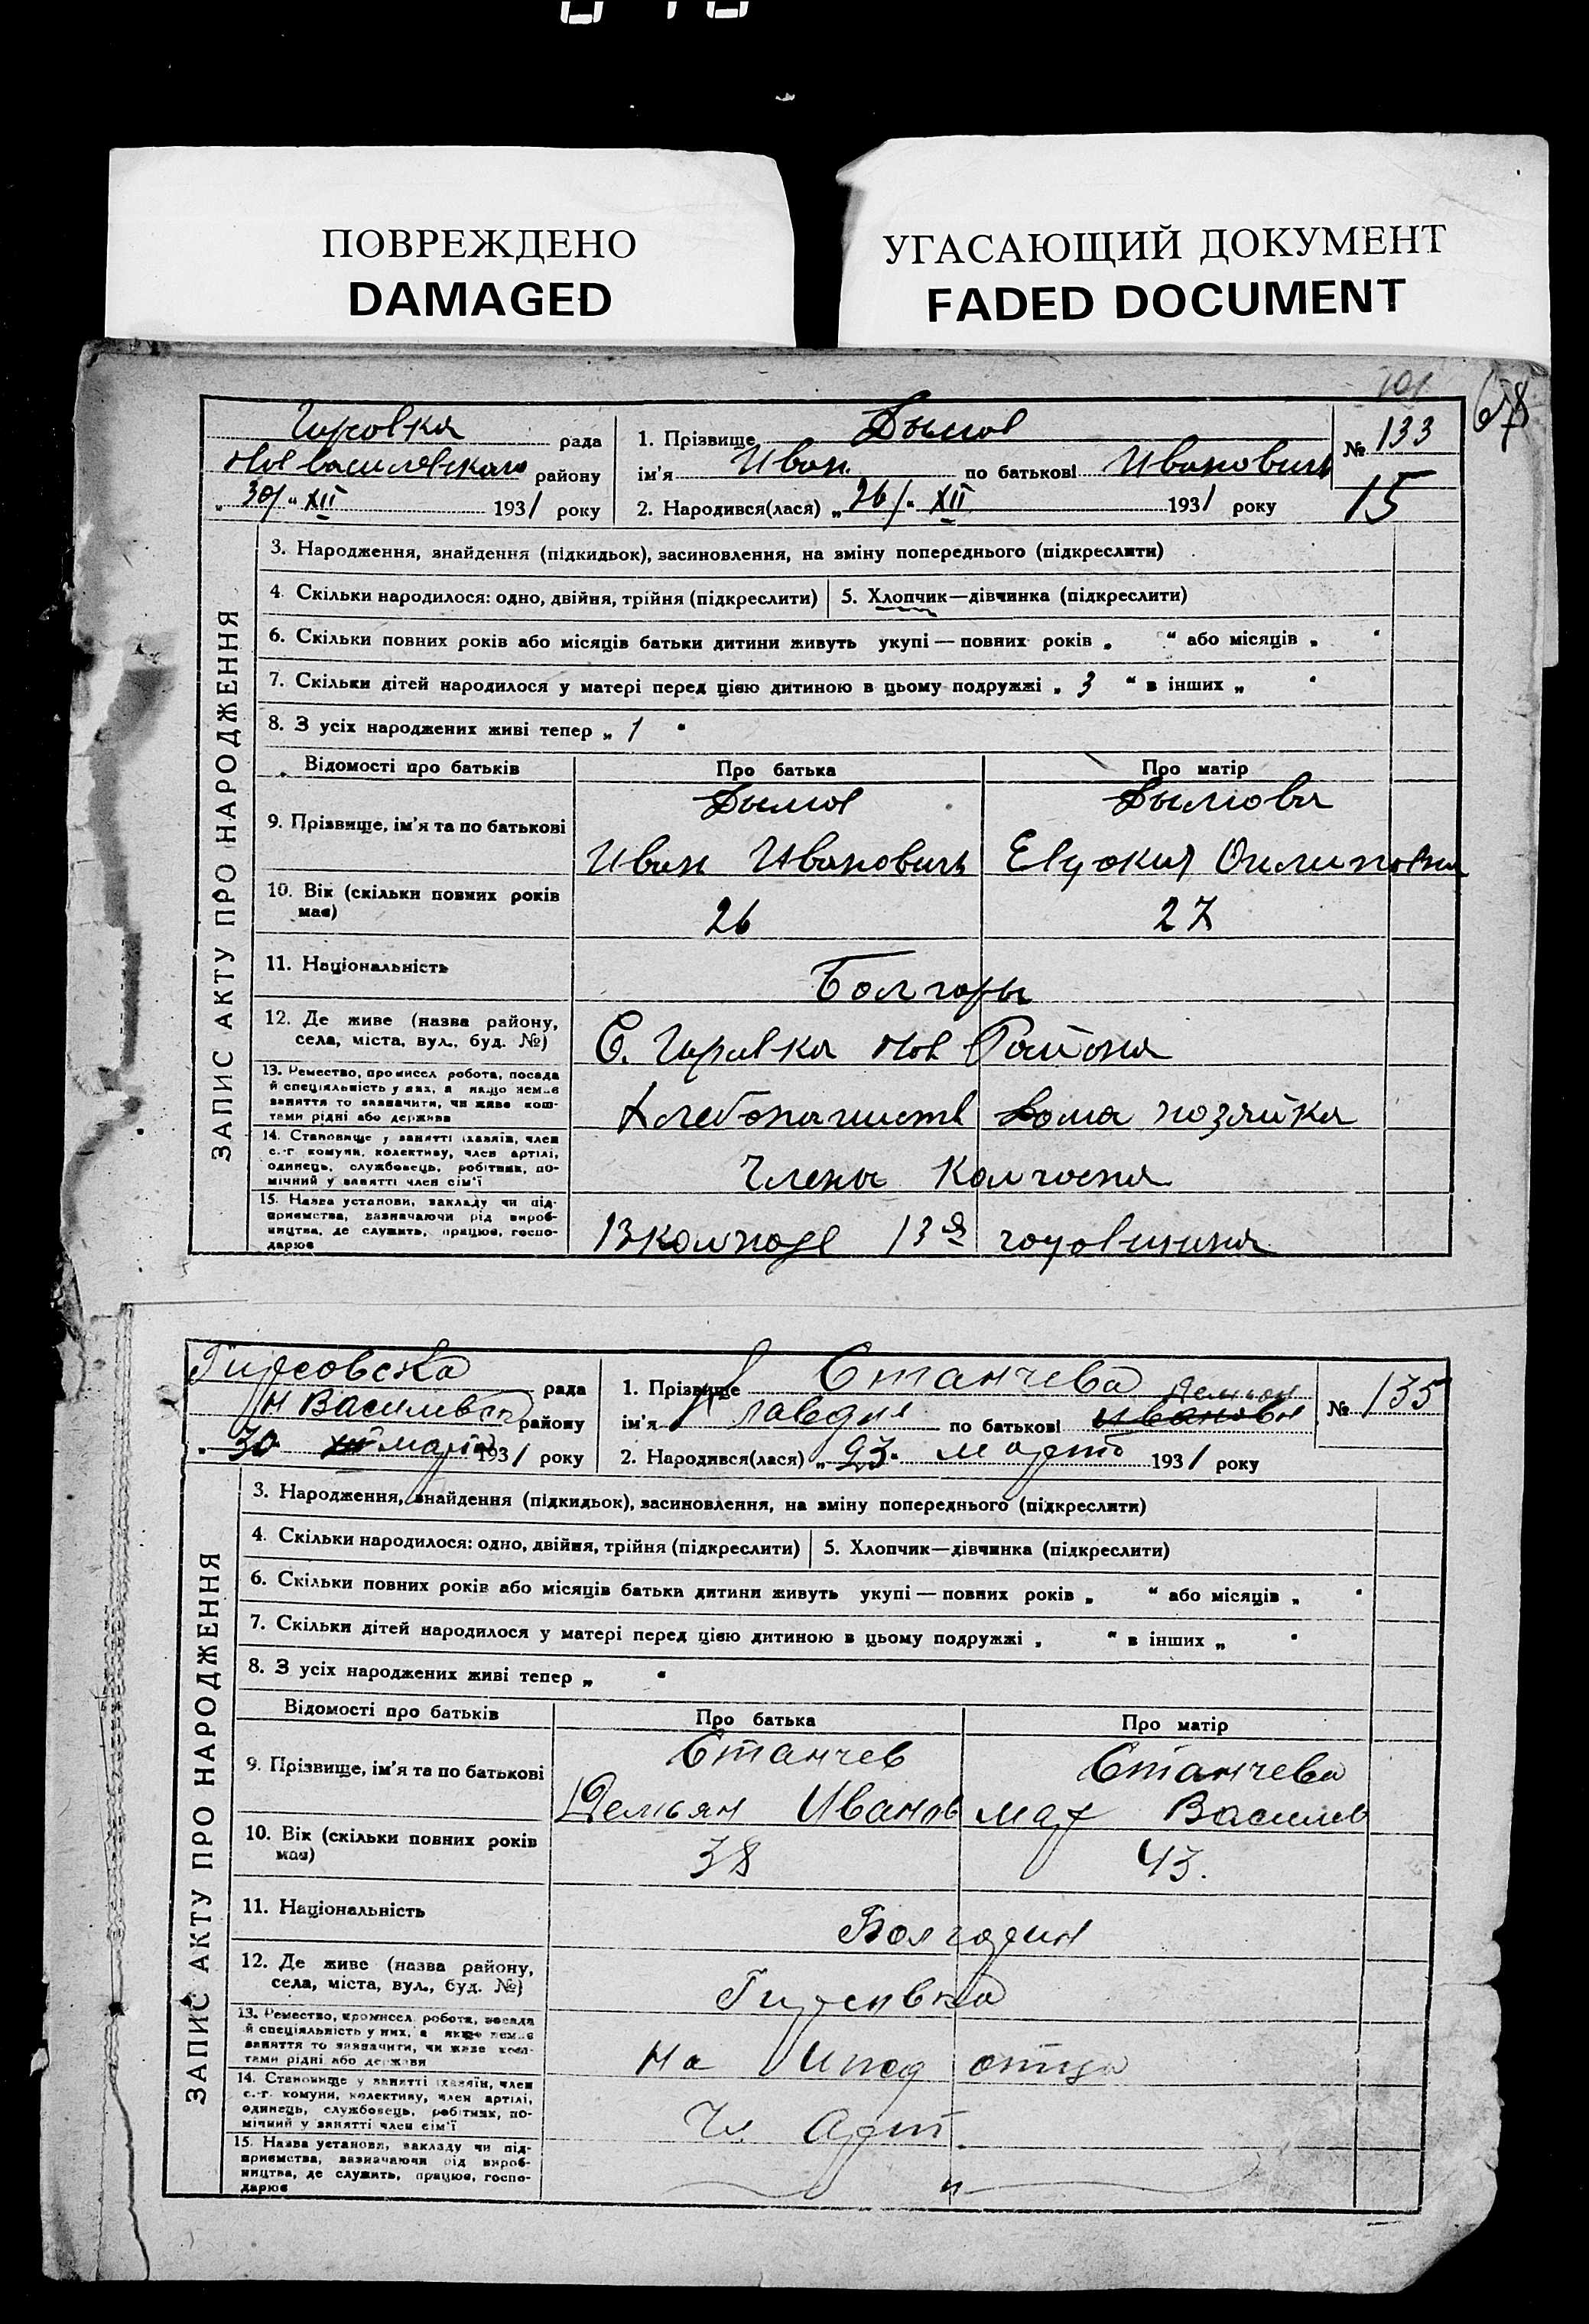 ПОВРЕЖДЕНО
DAMAGED
УГАСАЮЩИЙ ДОКУМЕНТ
FADED DOCUMENT
101
ЗАПИС АКТУ ПРО НАРОДЖЕННЯ
рада
району
„30/“ XII 1931 року
1. Прізвище Дымов
ім'я Иван по батькові Иванович
2. Народився(лася) „26/“ XII 1931 року
№ 133
15
3. Народження, знайдення (підкидьок), засиновлення, на зміну попереднього (підкреслити)
4. Скільки народилося: одно, двійня, трійня (підкреслити)
5. Хлопчик—дівчинка (підкреслити)
6. Скільки повних років або місяців батьки дитини живуть укупі — повних років „ “ або місяців „ “
7. Скільки дітей народилося у матері перед цією дитиною в цьому подружжі „ 3 “ в інших „ “
8. З усіх народжених живі тепер „ 1 “
Відомості про батьків
Про батька
Про матір
9. Прізвище, ім'я та по батькові
Дымов
Иван Иванович
Дымова
10. Вік (скільки повних років має)
26
27
11. Національність
Болгары
12. Де живе (назва району,
села, міста, вул., буд. №)
С. Гировка Нов Района
13. Ремество, промисел робота, посада
й спеціяльність у них, а якщо немає
заняття то зазначити, чи живе кош-
тами рідні або держави
Дома хозяйка
14. Становище у занятті (хазяїн, член
с.-г. комуни, колективу, член артілі,
одинець, службовець, робітник, по-
мічний у занятті член сім'ї
Члены Колхоза
15. Назва установи, закладу чи під-
приємства, зазначаючи рід вироб-
ництва, де служить, працює, госпо-
дарює
В колхозе 13я годовщина
ЗАПИС АКТУ ПРО НАРОДЖЕННЯ
Гирсовска рада
Н Васильевск району
„30“ марта 1931 року
1. Прізвище Станчева
ім'я Клавдия по батькові Демьян Ивановн
2. Народився(лася) „23“ марта 1931 року
№ 135
3. Народження, знайдення (підкидьок), засиновлення, на зміну попереднього (підкреслити)
4. Скільки народилося: одно, двійня, трійня (підкреслити)
5. Хлопчик—дівчинка (підкреслити)
6. Скільки повних років або місяців батьки дитини живуть укупі — повних років „ “ або місяців „ “
7. Скільки дітей народилося у матері перед цією дитиною в цьому подружжі „ “ в інших „ “
8. З усіх народжених живі тепер „ “
Відомості про батьків
Про батька
Про матір
9. Прізвище, ім'я та по батькові
Станчев
Демьян Иванов
Станчева
Мар Василев
10. Вік (скільки повних років має)
38
43.
11. Національність
Болгарин
12. Де живе (назва району,
села, міста, вул., буд. №)
Гирсовка
13. Ремество, промисел робота, посада
й спеціяльність у них, а якщо немає
заняття то зазначити, чи живе кош-
тами рідні або держави
На Ижд отца
14. Становище у занятті (хазяїн, член
с.-г. комуни, колективу, член артілі,
одинець, службовець, робітник, по-
мічний у занятті член сім'ї
Чл. Арт.
15. Назва установи, закладу чи під-
приємства, зазначаючи рід вироб-
ництва, де служить, працює, госпо-
дарює
„